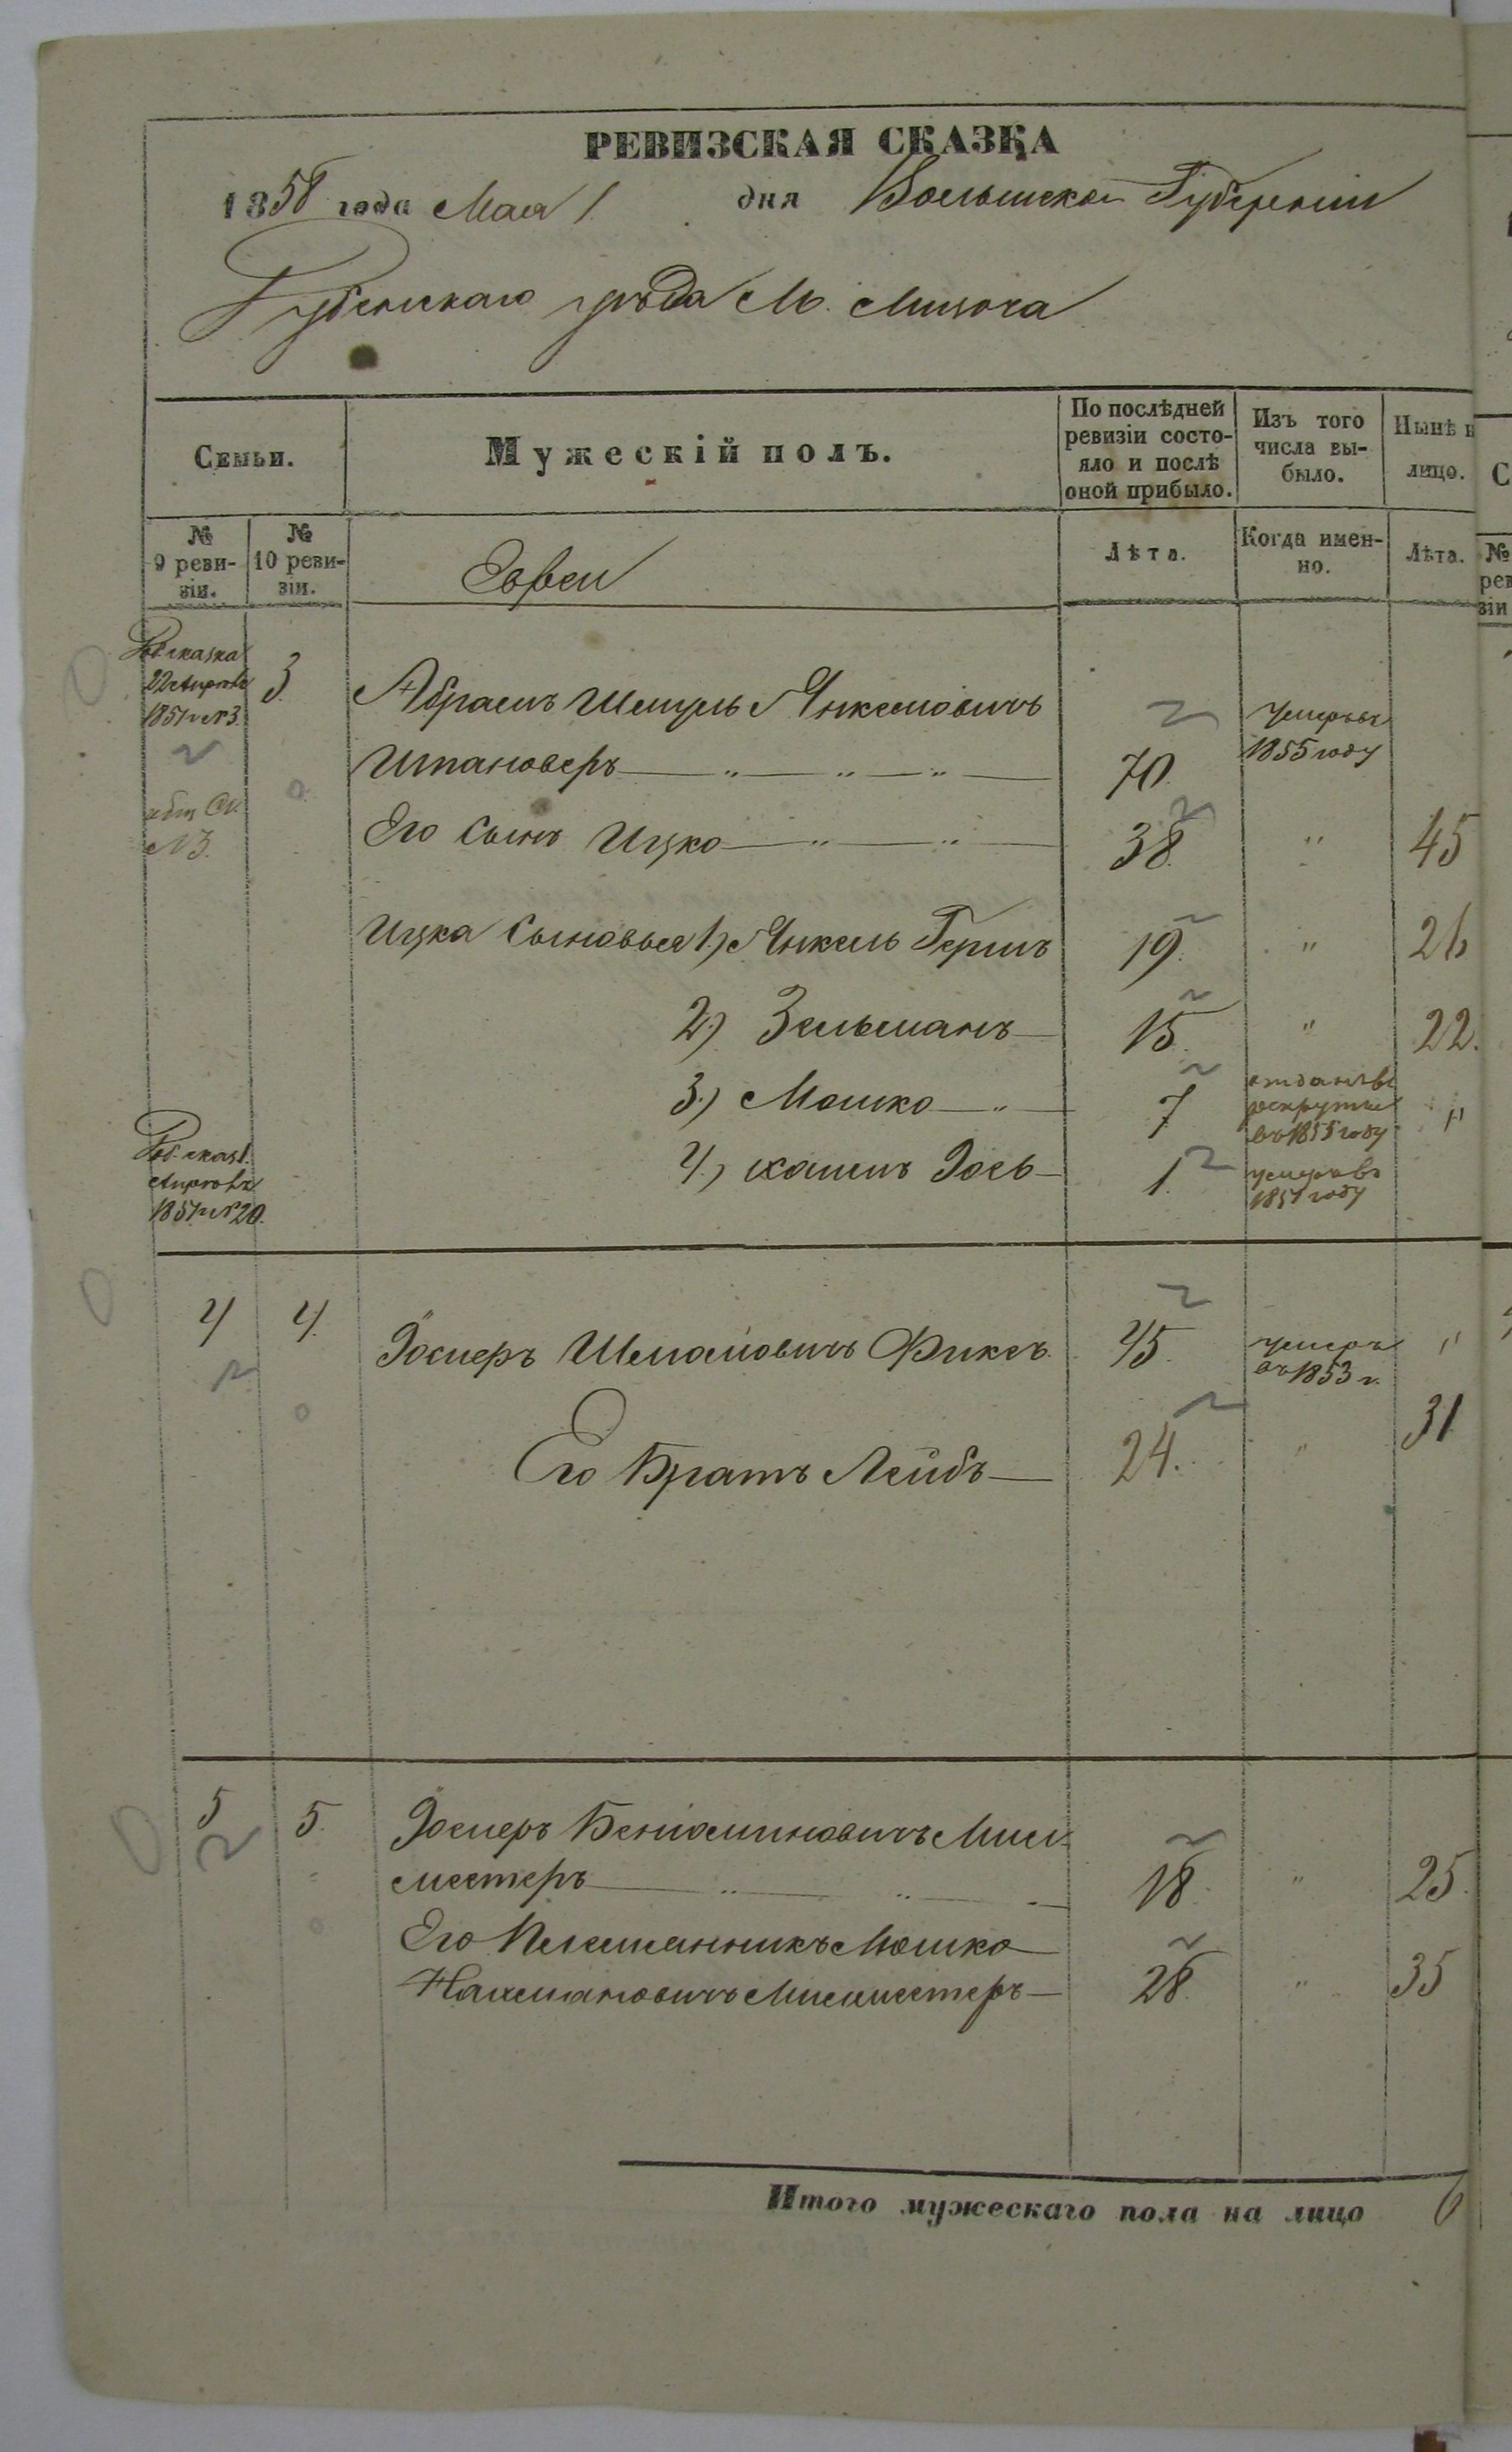 РЕВИЗСКАЯ СКАЗКА
1858 года Мая 1. дня Волынской Губерніи
Дубенскаго уѣзда М. Мизоча
Семьи.
Мужескій полъ.
По послѣдней ревизіи состо-
яло и послѣ
оной прибыло.
Изъ того
числа вы-
было.
Нынѣ н
лицо.
№
9 реви-
зіи.
№
10 реви-
зіи.
Евреи
Лѣта.
Когда имен-
но.
Лѣта.
сказка
22 Апреля
1851 № 3.
3.
Абрамъ Шмуль Янкелiовичъ
Шпановеръ 70. Умеръ въ
1855 году
№ 3.
Его Сынъ Ицко 38. " 45
Ицка Сыновья 1.) Янкель Гершъ 19. " 26
2.) Зельманъ 15. " 22.
3.) Мошко 7 отданъ въ
рекруты
въ 1855 году "
4.) Хаимъ Іось 1. умеръ въ
1851 году
сказ. 1.
Апреля
1851 № 20.
4 4. Іосперъ Шмаiовичъ Фиксъ. 45. умеръ
въ 1853 г. "
Его Братъ Лейбъ 24. " 31
5 5. Іосперъ Бенiаминовичъ Мил-
местеръ 18. " 25.
Его Племянникъ Мошко
Нахмановичъ Милместеръ 28. " 35
Итого мужескаго пола на лицо 6